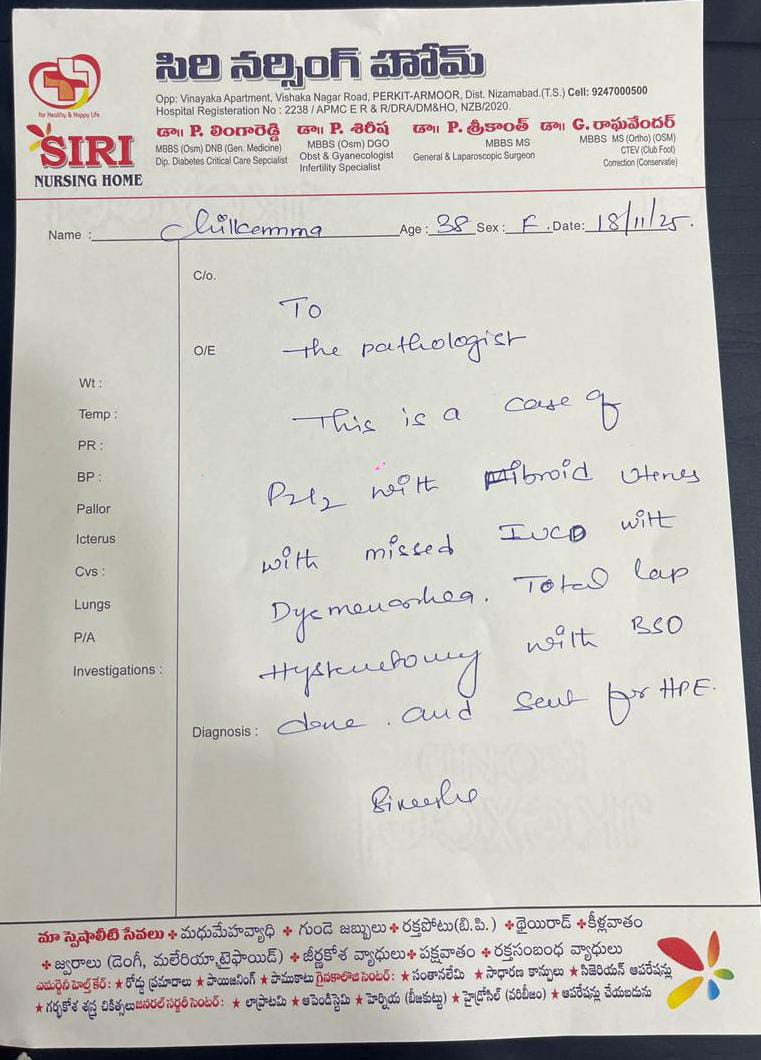 సిరి నర్సింగ్ హోమ్
for Healthy & Happy Life
SIRI
NURSING HOME
Opp: Vinayaka Apartment, Vishaka Nagar Road, PERKIT-ARMOOR, Dist. Nizamabad.(T.S.) Cell: 9247000500
Hospital Registeration No : 2238 / APMC E R & R/DRA/DM&HO, NZB/2020.
డా॥ P. లింగారెడ్డి డా॥ P. శిరీష డా॥ P. శ్రీకాంత్ డా॥ G. రాఘవేందర్
MBBS (Osm) DNB (Gen. Medicine) MBBS (Osm) DGO MBBS MS MBBS MS (Ortho) (OSM)
Dip. Diabetes Critical Care Sepcialist Obst & Gyanecologist General & Laparoscopic Surgeon CTEV (Club Foot)
Infertility Specialist Correction (Conservatie)
Name : Chilkamma Age : 38 Sex : F. Date: 18/11/25.
C/o.
To
O/E The pathologist
Wt :
Temp : This is a case of
PR :
BP : P2L2 with fibroid Uterus
Pallor
Icterus with missed IUCD with
Cvs :
Lungs Dysmenorrhea. Total lap
P/A
Investigations : Hysterectomy with BSO
Diagnosis : done. and sent for HPE.
మా స్పెషాలిటీ సేవలు + మధుమేహవ్యాధి + గుండె జబ్బులు + రక్తపోటు(బి.పి.) + థైయిరాడ్ + కీళ్లవాతం
+ జ్వరాలు (డెంగీ, మలేరియా,టైఫాయిడ్) + జీర్ణకోశ వ్యాధులు + పక్షవాతం + రక్తసంబంధ వ్యాధులు
ఎమర్జెన్సి హెల్త్ కేర్: ★ రోడ్డు ప్రమాదాలు ★ పాయిజనింగ్ ★ పాముకాటు గైనకాలాజి సెంటర్: ★ సంతానలేమి ★ సాధారణ కాన్పులు ★ సిజెరియన్ ఆపరేషన్లు
★ గర్భకోశ శస్త్ర చికిత్సలు జనరల్ సర్జరీ సెంటర్: ★ లాప్రాటమి ★ అపెండిస్టెమి ★ హెర్నియ (బీజకుట్టు) ★ హైడ్రోసిల్ (వరిబీజం) ★ ఆపరేషన్లు చేయబడును